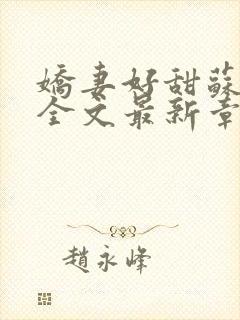 嬌妻好甜蘇
全文最新章
趙永峰